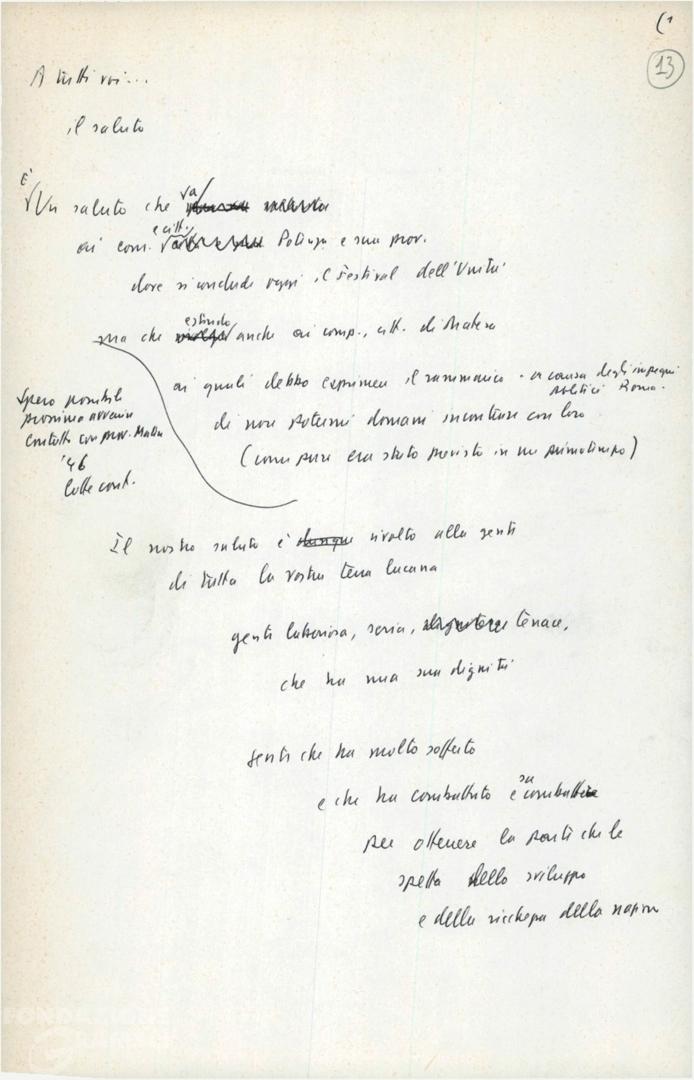 (1
13
A tutti voi...
il saluto
È
Un saluto che va
ai com. e citt. Potenza e sua prov.
dove si conclude oggi il Festival dell'Unità
ma che estendo anche ai comp., citt. di Matera
ai quali debbo esprimere il rammarico - a causa degli impegni
politici Roma -
di non potermi domani incontrare con loro
(come pure era stato previsto in un primo tempo)
Spero possibile
prossimo avvenire
contatto con prov. Matera
'46
lotte cont.
Il nostro saluto è rivolto alla gente
di tutta la vostra terra lucana
gente laboriosa, seria, tenace,
che ha una sua dignità
gente che ha molto sofferto
e che ha combattuto e sa combattere
per ottenere la parte che le
spetta dello sviluppo
e della ricchezza della nazione
FONDAZIONE